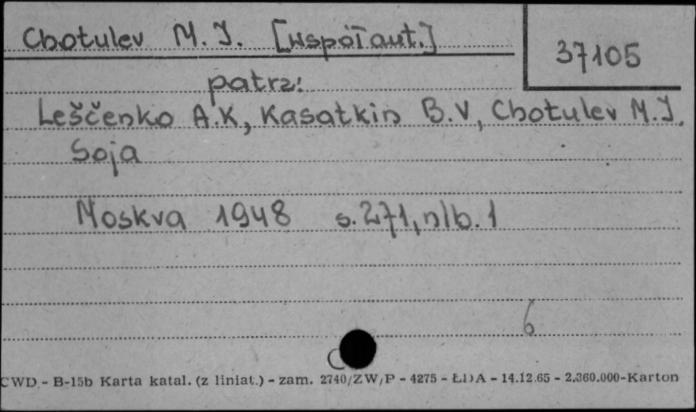 Chotulev M. J. [współaut.]
37105
patrz:
Leščenko A.K, Kasatkin B.V, Chotulev M.J.
Soja
Moskva 1948 s. 271, nlb. 1
6
C
CWD - B-15b Karta katal. (z liniat.) - zam. 2740/ZW/P - 4275 - ŁDA - 14.12.65 - 2.360.000-Karton